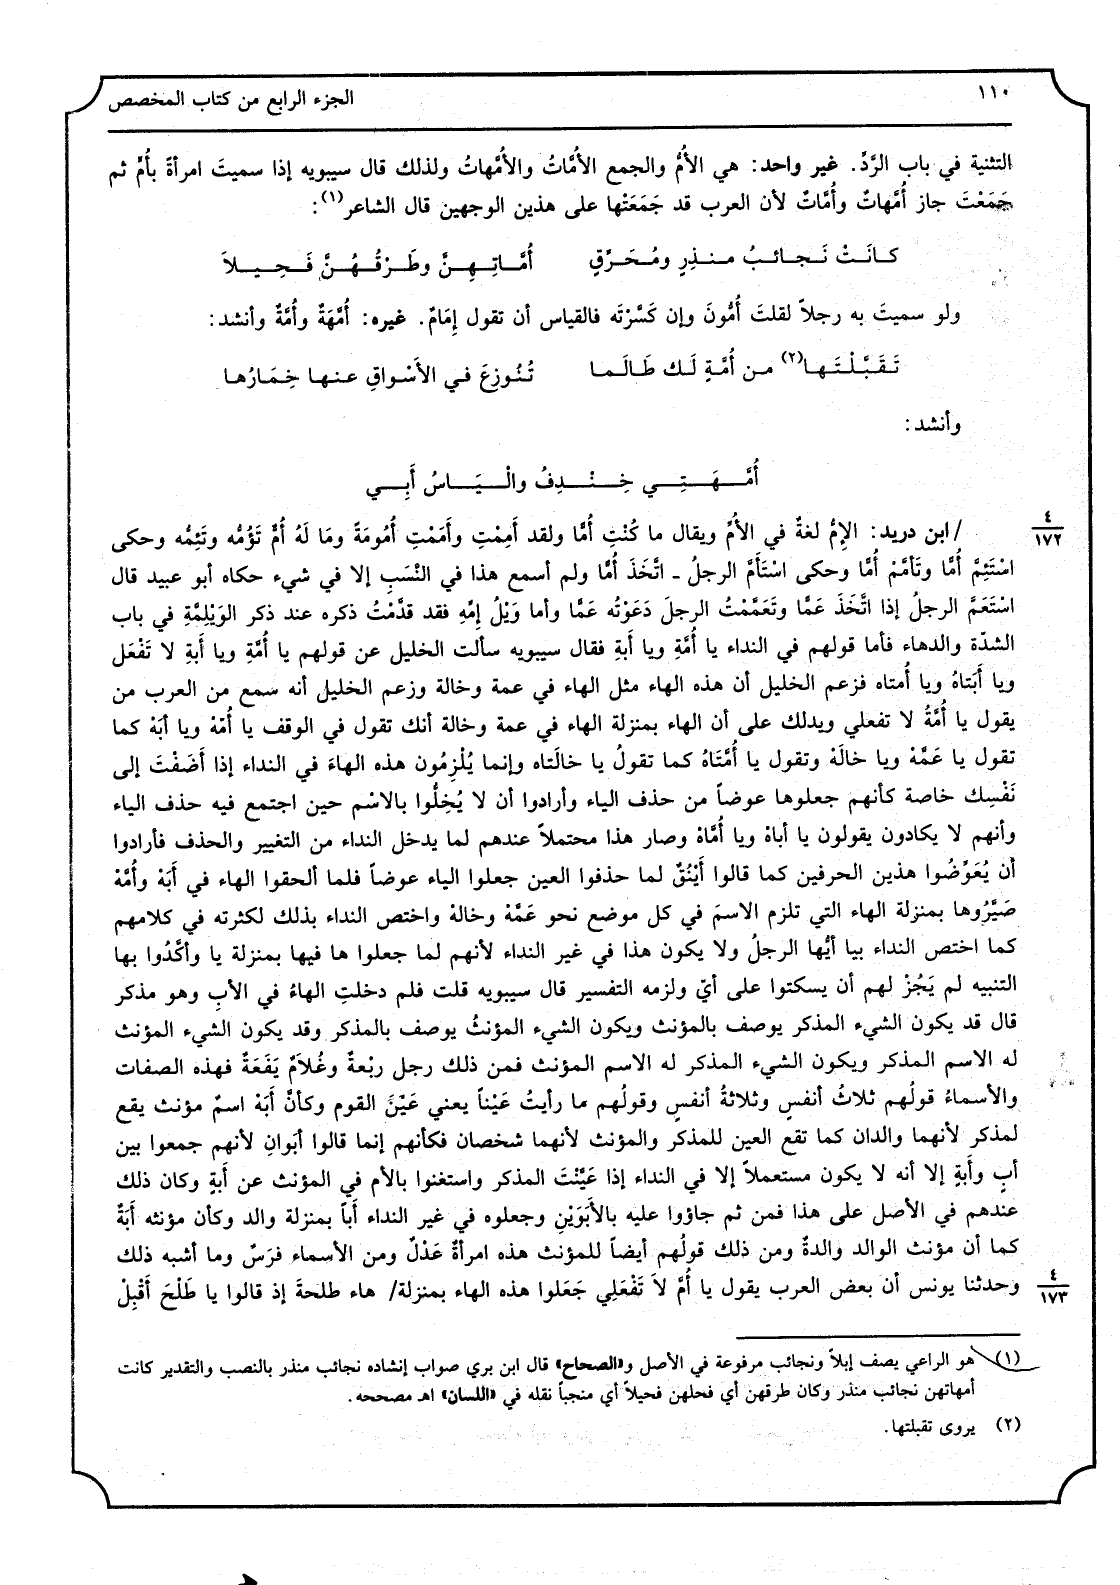 ١١٠
الجزء الرابع من كتاب المخصص
التثنية في باب الرَّدِّ. غير واحد: هي الأُمُّ والجمع الأُمَّاتُ والأُمَّهاتُ ولذلك قال سيبويه إذا سميتَ امرأةً بأُمٍّ ثم
جَمَعْتَ جاز أُمَّهاتٌ وأُمَّاتٌ لأن العرب قد جَمَعَتْها على هذين الوجهين قال الشاعر(١):
كـانَـتْ نَـجـائـبُ مـنـذِرٍ ومُـحَـرِّقٍ أُمَّـاتِـهِـنَّ وطَـرْقُـهُـنَّ فَـحِـيـلاَ
ولو سميتَ به رجلاً لقلتَ أُمُّونَ وإن كَسَّرْتَه فالقياس أن تقول إِمَامٌ. غيره: أُمَّهَةٌ وأُمَّةٌ وأنشد:
تَـقَـبَّـلْـتَـهـا(٢) مـن أُمَّةٍ لَـك طَـالَـمـا تُـنُـوزِعَ فـي الأَسْـواقِ عـنـهـا خِـمَـارُهـا
وأنشد:
أُمَّـهَـتِـي خِـنْـدِفُ والْـيَـاسُ أَبِـي
٤
١٧٢
/ ابن دريد: الإمُّ لغةٌ في الأُمِّ ويقال ما كُنْتِ أُمًّا ولقد أَمِمْتِ وأَمَمْتِ أُمُومَةً وما لَهُ أُمٌّ تَؤُمُّه وتَئِمُّه وحكى
اسْتَئِمَّ أُمًّا وتَأَمَّمْ أُمًّا وحكى اسْتَأَمَّ الرجلُ ـ اتَّخَذَ أُمًّا ولم أسمع هذا في النَّسَبِ إلا في شيء حكاه أبو عبيد قال
اسْتَعَمَّ الرجلُ إذا اتَّخَذَ عَمًّا وتَعَمَّمْتُ الرجلَ دَعَوْتُه عَمًّا وأما وَيْلُ إِمِّهِ فقد قدَّمْتُ ذكره عند ذكر الوَيْلِمَّةِ في باب
الشدّة والدهاء فأما قولهم في النداء يا أُمَّةِ ويا أَبةِ فقال سيبويه سألت الخليل عن قولهم يا أُمَّةِ ويا أَبةِ لا تَفْعَل
ويا أَبَتاهُ ويا أُمتاه فزعم الخليل أن هذه الهاء مثل الهاء في عمة وخالة وزعم الخليل أنه سمع من العرب من
يقول يا أُمَّةُ لا تفعلي ويدلك على أن الهاء بمنزلة الهاء في عمة وخالة أنك تقول في الوقف يا أُمّهْ ويا أبَهْ كما
تقول يا عَمَّهْ ويا خالَهْ وتقول يا أُمَّتَاهُ كما تقولُ يا خالَتاه وإنما يُلْزِمُون هذه الهاءَ في النداء إذا أَضَفْتَ إلى
نَفْسِك خاصة كأنهم جعلوها عوضاً من حذف الياء وأرادوا أن لا يُخِلُّوا بالاسْم حين اجتمع فيه حذف الياء
وأنهم لا يكادون يقولون يا أباهْ ويا أُمَّاهْ وصار هذا محتملاً عندهم لما يدخل النداء من التغيير والحذف فأرادوا
أن يُعَوِّضُوا هذين الحرفين كما قالوا أَيْنُقٌ لما حذفوا العين جعلوا الياء عوضاً فلما ألحقوا الهاء في أَبَهْ وأُمَّهْ
صَيَّرُوها بمنزلة الهاء التي تلزم الاسمَ في كل موضع نحو عَمَّهْ وخالهْ واختص النداء بذلك لكثرته في كلامهم
كما اختص النداء بيا أيُّها الرجلُ ولا يكون هذا في غير النداء لأنهم لما جعلوا ها فيها بمنزلة يا وأكَّدُوا بها
التنبيه لم يَجُزْ لهم أن يسكتوا على أيّ ولزمه التفسير قال سيبويه قلت فلم دخلتِ الهاءُ في الأبِ وهو مذكر
قال قد يكون الشيء المذكر يوصف بالمؤنث ويكون الشيء المؤنثُ يوصف بالمذكر وقد يكون الشيء المؤنث
له الاسم المذكر ويكون الشيء المذكر له الاسم المؤنث فمن ذلك رجل ربْعةٌ وغُلاَمٌ يَفَعَةٌ فهذه الصفات
والأسماءُ قولُهم ثلاثُ أنفسٍ وثلاثةُ أنفسٍ وقولُهم ما رأيتُ عَيْناً يعني عَيْنَ القوم وكأنَّ أَبَهْ اسمٌ مؤنث يقع
لمذكر لأنهما والدان كما تقع العين للمذكر والمؤنث لأنهما شخصان فكأنهم إنما قالوا أبَوانِ لأنهم جمعوا بين
أبٍ وأَبةٍ إلا أنه لا يكون مستعملاً إلا في النداء إذا عَيَّنْتَ المذكر واستغنوا بالأم في المؤنث عن أَبةٍ وكان ذلك
عندهم في الأصل على هذا فمن ثم جاؤوا عليه بالأَبَوَيْنِ وجعلوه في غير النداء أَباً بمنزلة والد وكأن مؤنثه أَبَةٌ
كما أن مؤنث الوالد والدةٌ ومن ذلك قولُهم أيضاً للمؤنث هذه امرأةٌ عَدْلٌ ومن الأسماء فَرَسٌ وما أشبه ذلك
٤
١٧٣
وحدثنا يونس أن بعض العرب يقول يا أُمَّ لاَ تَفْعَلِي جَعَلوا هذه الهاء بمنزلة/ هاء طلحةَ إذ قالوا يا طَلْحَ أَقْبِلْ
(١) هو الراعي يصف إبلاً ونجائب مرفوعة في الأصل و«الصحاح» قال ابن بري صواب إنشاده نجائب منذر بالنصب والتقدير كانت
أمهاتهن نجائب منذر وكان طرقهن أي فحلهن فحيلاً أي منجباً نقله في «اللسان» اهـ مصححه.
(٢) يروى تقبلتها.